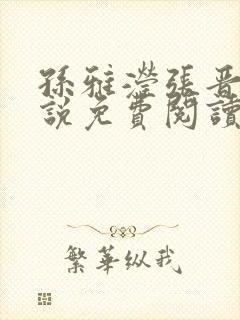 孫雅瀅張晉
說免費閱讀
繁華纵我